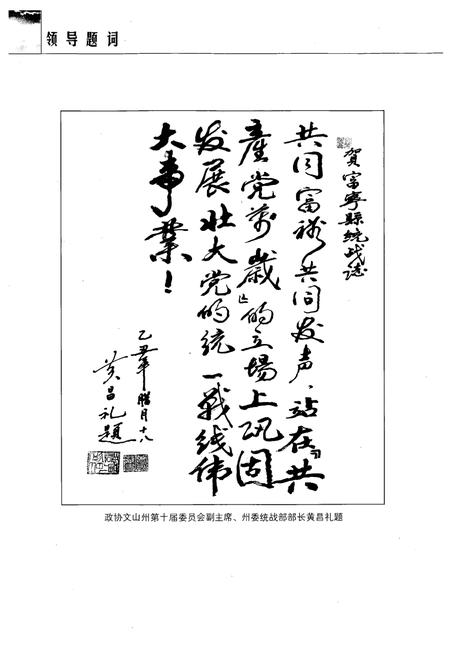 领导题词
贺富寧縣统战誌
共同富裕共同发声，站在“共
產党萬歲”的立場上巩固
发展壮大党的统一戰线伟
大事業！
乙丑年腊月十八
黄昌礼題
政协文山州第十届委员会副主席、州委统战部部长黄昌礼题